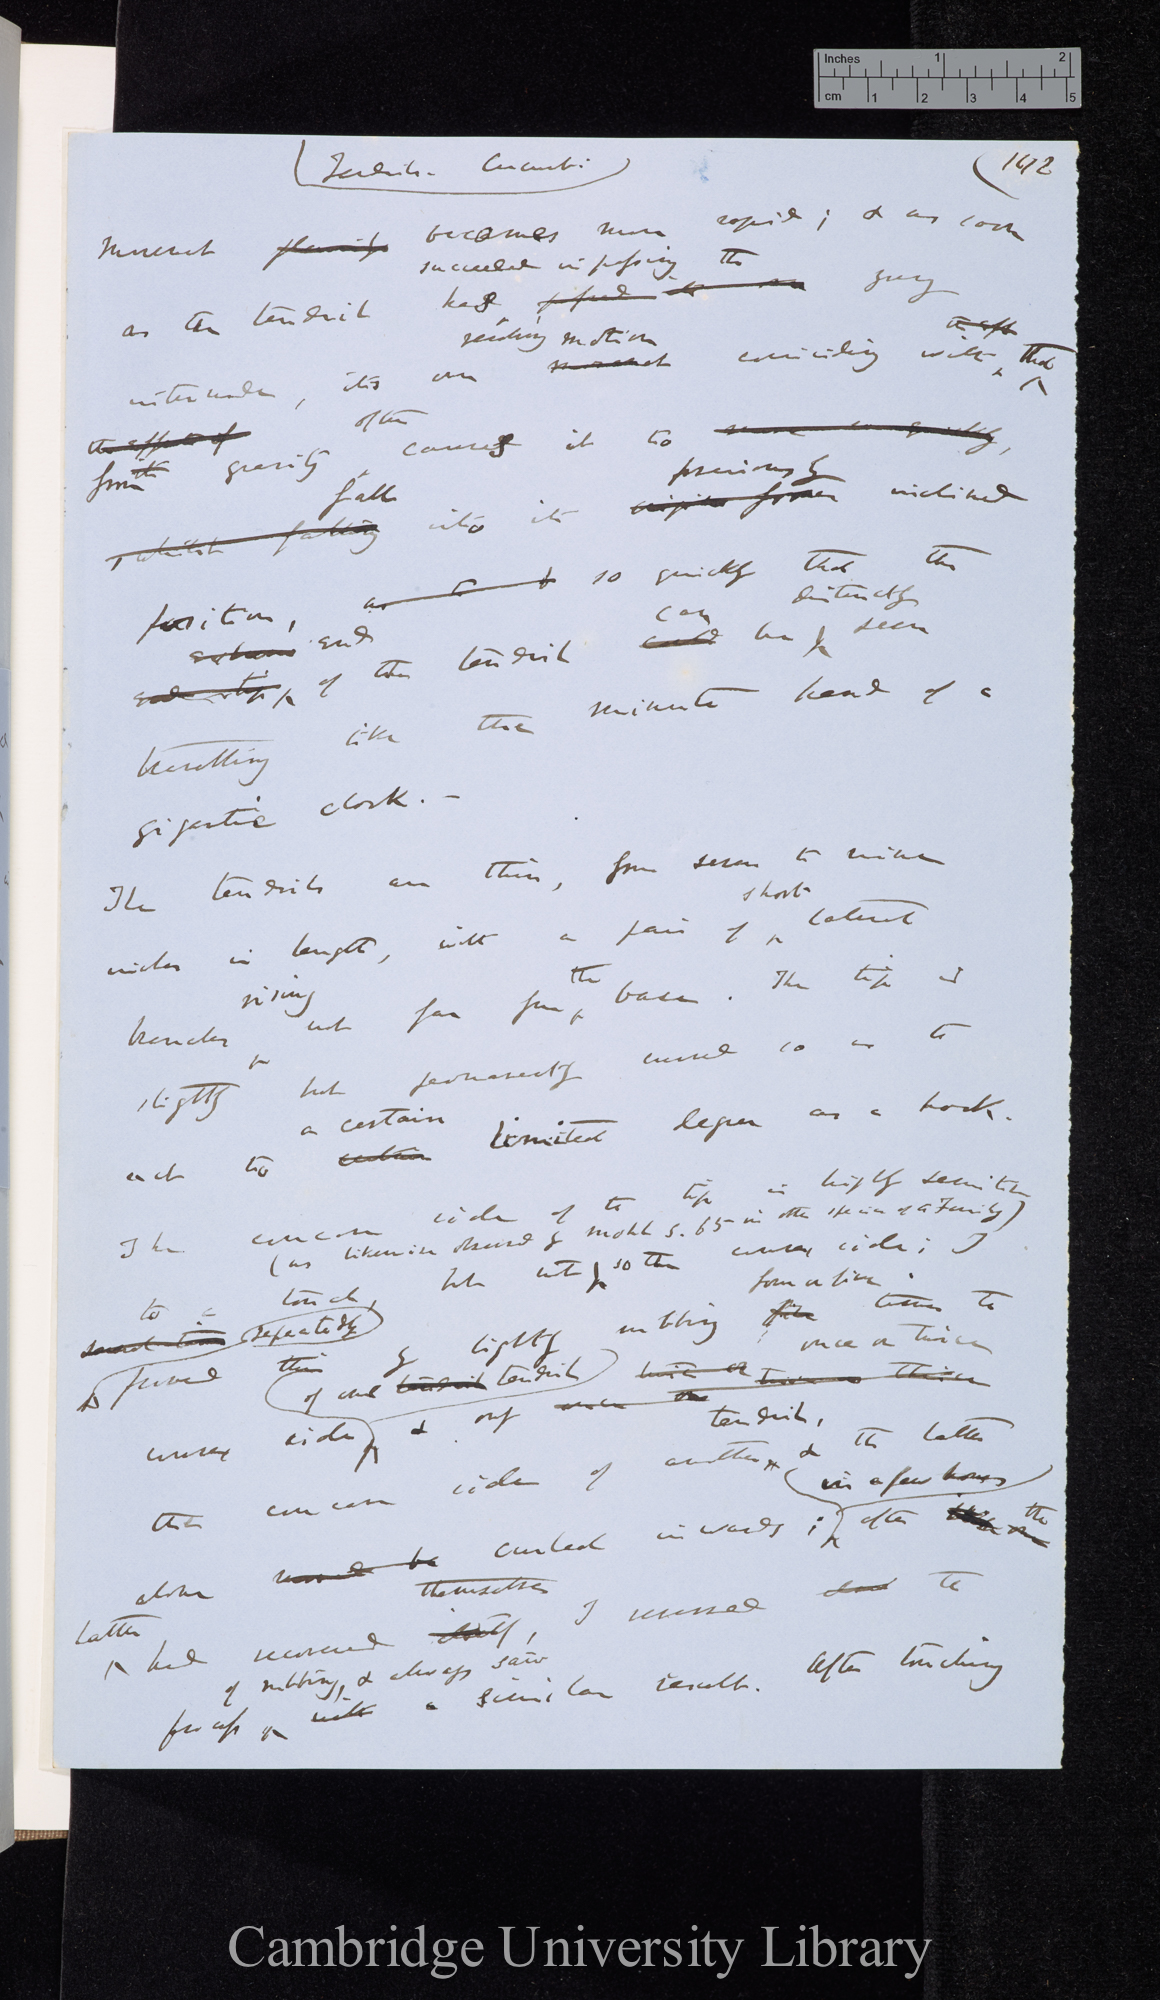 Inches 1 2
cm 1 2 3 4 5
Tendrils - Cucurb:
142
movement becomes more rapid; & as soon
succeeded in passing the
as the tendril has growing
internode, its own revolving motion coinciding with that
from gravity often causes it to
fall into its previously inclined
position, so quickly that the
end of the tendril can be distinctly seen
travelling like the minute hand of a
gigantic clock. —
The tendrils are thin, from seven to nine
inches in length, with a pair of short lateral
branches rising not far from the base. The tip is
slightly but permanently curved so as to
act to a certain limited degree as a hook.
The concave side of the tip is highly sensitive
(as likewise observed by Mohl S. 65 in other species of a Family)
to a touch, but not so the convex side; I
repeatedly
proved this by lightly rubbing four or five times the
convex side of one tendril & only once or twice
the concave side of another tendril, & the latter
alone curled inwards; in a few hours after the
latter had recovered themselves, I reversed the
process of rubbing, & always saw a similar result. After touching
Cambridge University Library